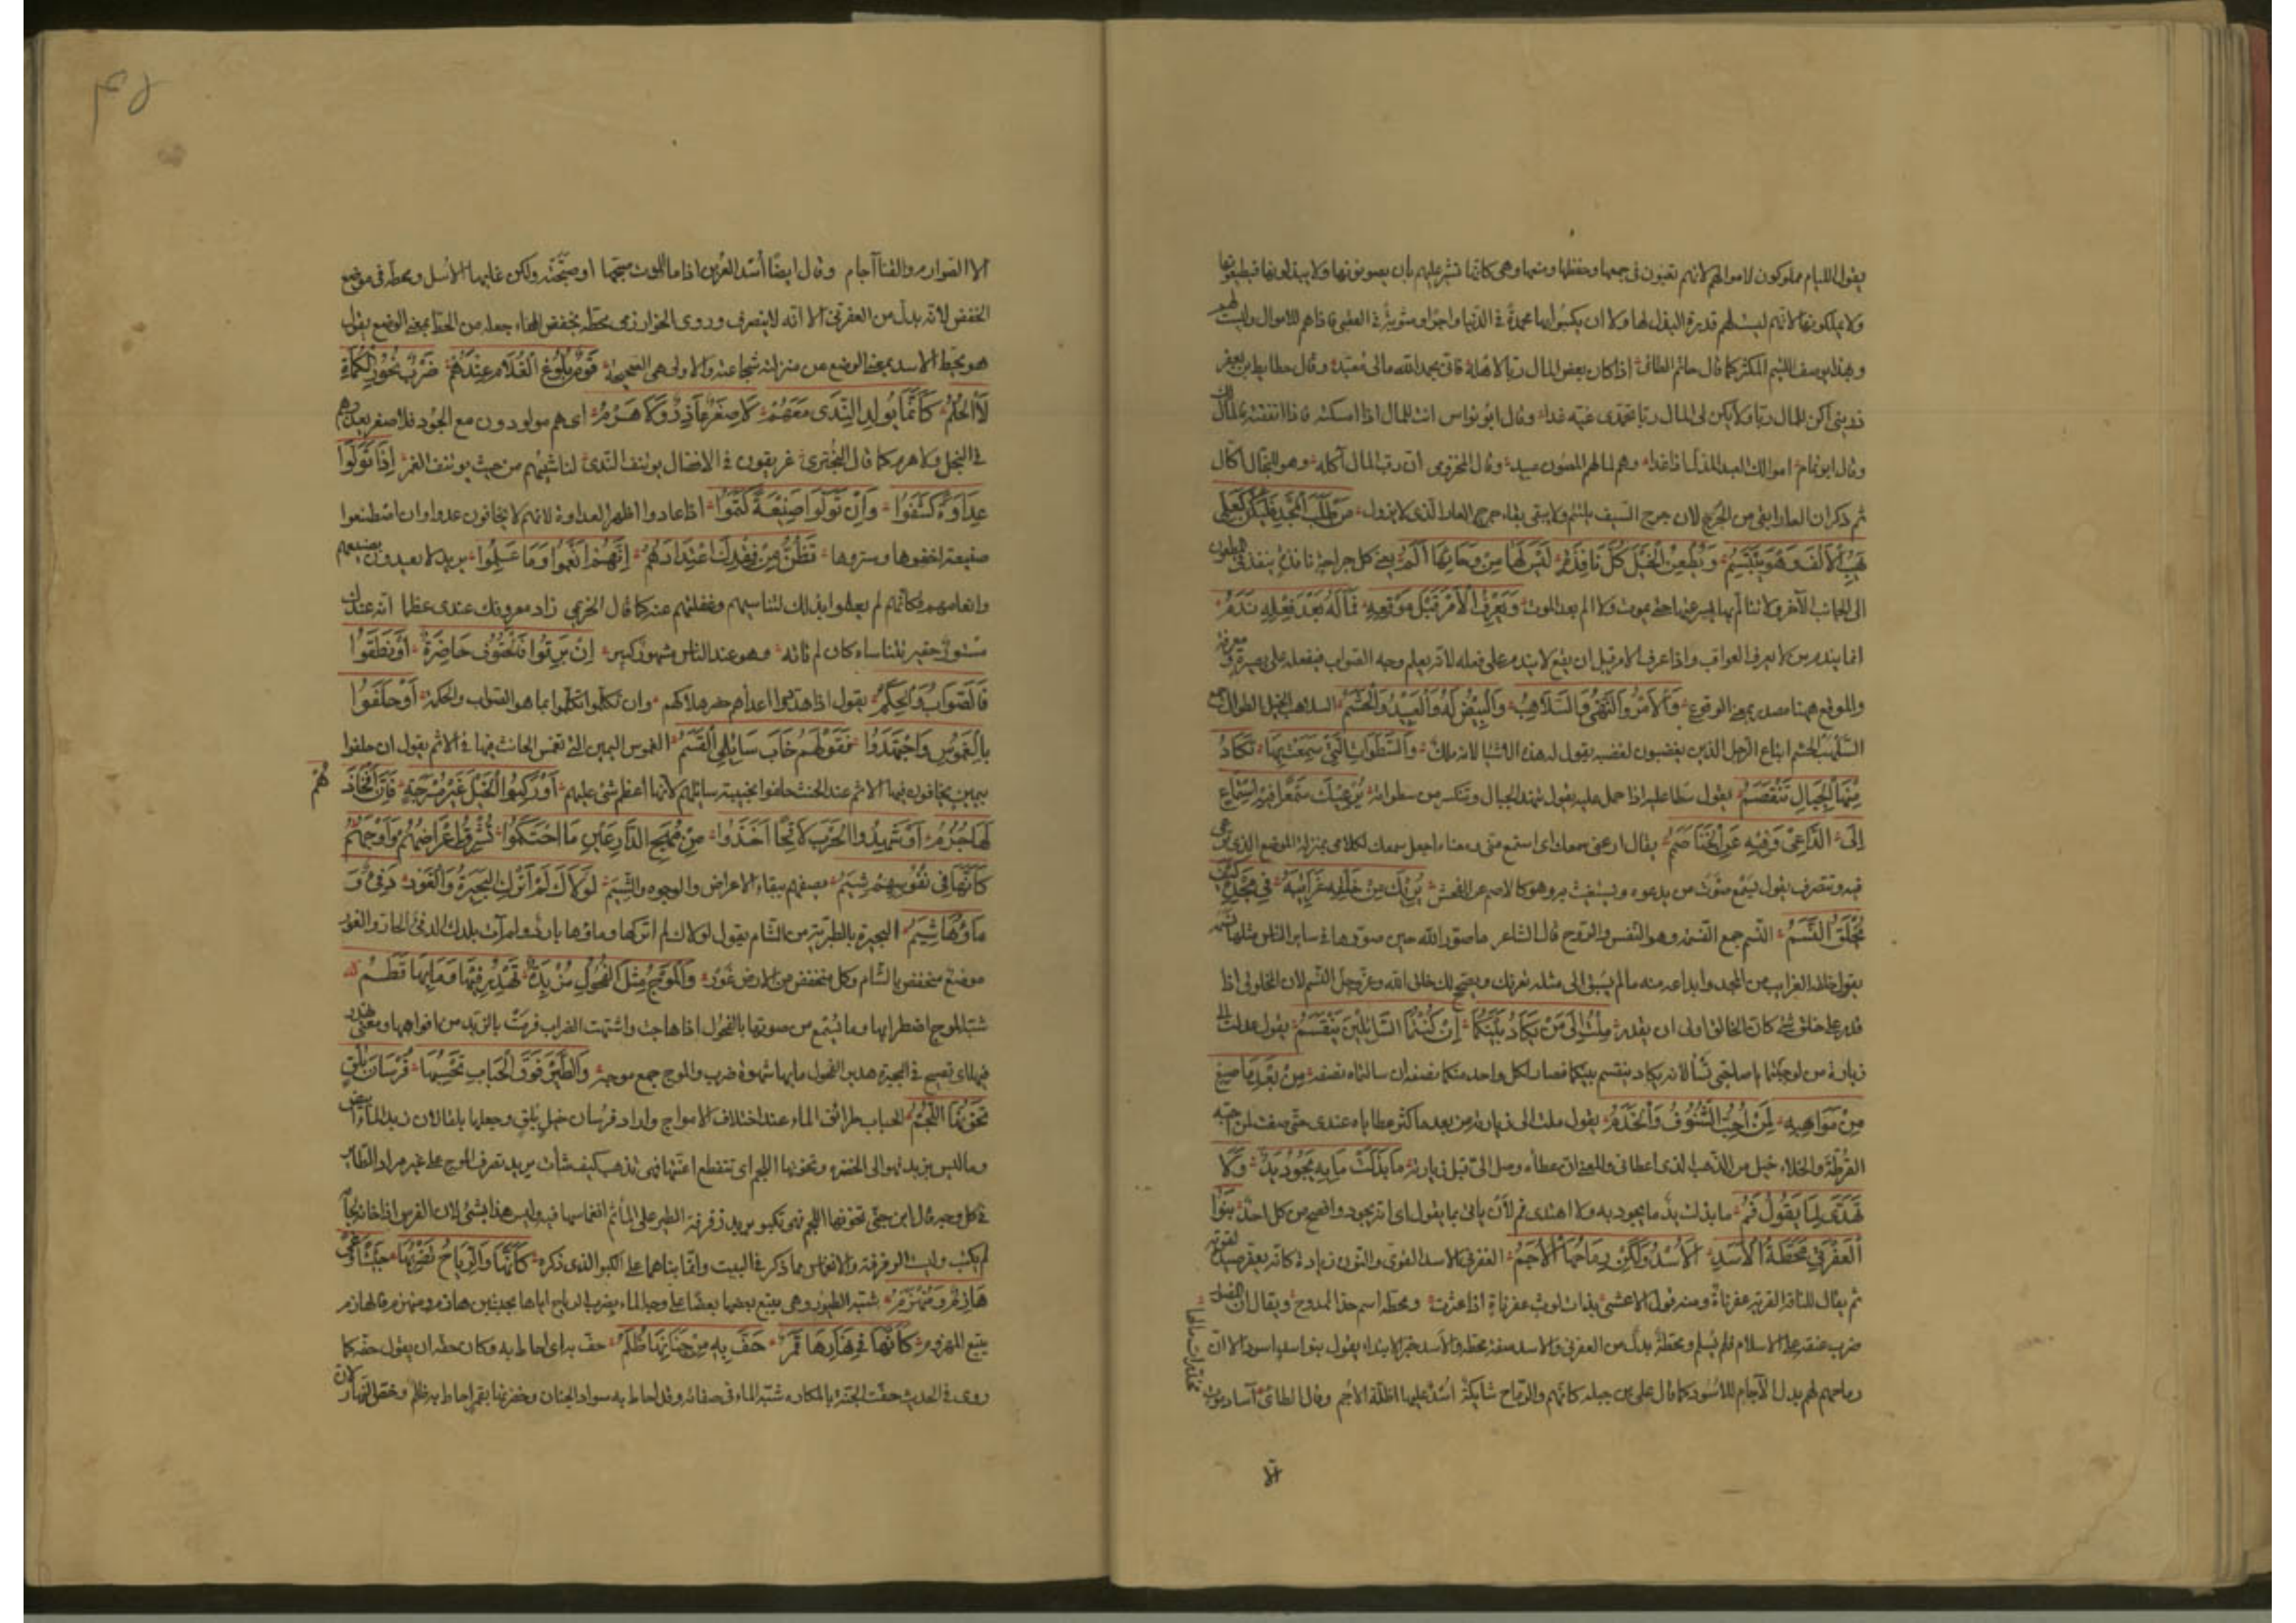 يقول اللئام مملوكون لاموالهم لانهم تعبون في جمعها وحفظها ومنعها وهي كانها تشير عليهم بان يصونونها ولا يبذلونها فيطيعونها
ولا يملكونها لانهم ليست لهم قدرة البذل لها ولا ان يكسبوا بها محمدة في الدنيا واجرا ومثوبة في العقبى فاذا هم للاموال وليست لهم
وبهذا يوصف اللئيم المكثر كما قال حاتم الطائي اذا كان بعض المال ربا لاهله فاني بحمد الله مالي معبّد وقال حطايط بن يعفر
ذريني اكن للمال ربا ولا يكن لي المال ربا تحمدي غبه غدا وقال ابو نواس انت للمال اذا امسكته فاذا انفقته فالمال لك
وقال ابو تمام اموالك العبد المذلل وهم لمالهم المصون عبيد وقال المخزومي ان رب المال آكله وهو للبخال اكّال
ثم ذكر ان العار ابقى من الجرح لان جرح السيف يلتئم ولا يبقى بقاء جرح العار الذي لا يزول مَن طَلَبَ المَجدَ فَليَكُن كَعَلِيّ
يَهَبُ الأَلفَ وَهُوَ يَبتَسِمُ وَيَطعَنُ الخَيلَ كُلَّ نافِذَةٍ لَيسَ لَها مِن وَحائِها أَلَمُ يعني كل جراحة نافذة ينفذ في المطعون
الى الجانب الآخر ولا يتألم بها لسرعتها حتى يموت ولا الم بعد الموت وَيَعرِفُ الأَمرَ قَبلَ مَوقِعِهِ فَما لَهُ بَعدَ فِعلِهِ نَدَمُ
انما يندم من لا يعرف العواقب واذا عرف الامر قبل ان يقع لا يندم على فعله لانه يعلم وجه الصواب فيفعله على بصيرة ومعرفة
والموقع ههنا مصدر بمعنى الوقوع وَالأَمرُ وَالنَهيُ وَالسَلاهِبُ وَالبِيضُ لَهُ وَالعَبيدُ وَالحَشَمُ السلاهب الخيل الطوال
السلهب الحشم اتباع الرجل الذين يغضبون لغضبه يقول له هذه الاشيا لانه ملك وَالسَطَواتُ الَّتي سَمِعتَ بِها تَكادُ
مِنها الجِبالُ تَنقَصِمُ يقول سطا عليه اذا حمل عليه يقول تنهد الجبال وتنكسر من سطواته يُرعيكَ سَمعاً فيهِ اِستِماعٌ
إِلى الداعي وَفيهِ عَنِ الخَنا صَمَمُ يقال ارعني سمعك اي استمع مني ومعناه اجعل سمعك لكلامي بمنزلة الموضع الذي ترعى
فيه وتتصرف يقول يسمع صوت من يدعوه ويستغيث به وهو كالاصم عن الفحش يُريكَ مِن خَلقِهِ غَرائِبَهُ في مَجدِهِ كَيفَ
يُخلَقُ النَسَمُ النسم جمع النسمة وهو النفس والروح قال الشاعر ما صور الله حين صورها في ساير الناس مثلها نسمه
يقول خلقه الغرايب من المجد وابداعه منه ما لم يسبق الى مثله يعرفك ويصحح لك خلق الله عز وجل النسم لان المخلوق اذا
قدر على خلق شيء كان الخالق اولى ان يقدر مِلتُ إِلى مَن يَكادُ بَينَكُما إِن كُنتُما السائِلَينِ يَنقَسِمُ يقول عدلت الى
زيارة من لو جئتما يا صاحبي تسألانه يكاد ينقسم بينكما فصار لكل واحد منكما نصفه ان سالتماه نصفه مِن بَعدِ ما صيغَ
مِن مَواهِبِهِ لِمَن أُحِبُّ الشُنوفُ وَالخَدَمُ يقول ملت الى زيارته من بعد ما كثر عطاياه عندي حتى صغت لمن احبه
القرطة والخلاخيل من الذهب الذي اعطاني والمعنى ان عطاءه وصل الي قبل زيارته ما بَذَلَت ما بِهِ يَجودُ يَدٌ وَلا
تَهَدّى لِما يَقولُ فَمُ ما بذلت يد ما يجود به ولا اهتدى فم لأن يأتي بما يقول اي انه اجود وافصح من كل احد بَنو
العَفَرنى مَحَطَّةَ الأَسَدِ الأُسدُ وَلَكِن رِماحُها الأَجَمُ العفرنى الاسد القوي والنون زيادة كانه يعفر صيده لقوته
ثم يقال للناقة القوية عفرناة ومنه قول الاعشى بذات لوث عفرناة اذا عثرت ومحطة اسم جد الممدوح ويقال ان الفضل
ضرب عنقه على الاسلام فلم يسلم ومحطة بدل من العفرنى والاسد صفة محطة والاسد خبر الابتداء يقول بنو اسد اسود الا ان
رماحهم لهم بدل الآجام للاسود كما قال علي بن جبلة كانهم والرماح شابكة اسد عليها اظلت الاجم وقال الطائي آساد موت
مخدرات مالها
الا
الا الصوارم والقنا آجام وقال ايضا أسد العرين اذا ما الموت صبحها او صبحته ولكن غابها الأسل ومحطة في موضع
الخفض لانه بدل من العفرنى الا انه لا ينصرف وروى الخوارزمي محطه بخفض الهاء جعله من الحط بمعنى الوضع يقول
هو يحط الاسد بمعنى الوضع من منزلته شجاعته والاولى هي الصحيحة قَومٌ بُلوغُ الغُلامِ عِندَهُمُ طَعنُ نُحورِ الكُماةِ
لا الحُلُمُ كَأَنَّما يولَدُ النَدى مَعَهُم لا صِغَرٌ عاذِرٌ وَلا هَرَمُ اي هم مولودون مع الجود فلا صغر يعذرهم
في البخل ولا هرم كما قال البحتري عريقون في الافضال يؤتنف الندى لناشئهم من حيث يؤتنف العمر إِذا تَوَلَّوا
عَداوَةً كَشَفوا وَإِن تَوَلَّوا صَنيعَةً كَتَموا اذا عادوا اظهروا العداوة لانهم لا يخافون عدوا وان اصطنعوا
صنيعة اخفوها وستروها تَظُنُّ مِن فَقدِكَ اِعتِدادَهُمُ إِنَّهُم أَنعَموا وَما عَلِموا يريد لا يعتدون بصنيعهم
وانعامهم فكانهم لم يعلموا بذلك لتناسيهم وغفلتهم عنه كما قال الخريمي زاد معروفك عندي عظما انه عندك
مستور حقير تتناساه كان لم تاته وهو عند الناس مشهور كبير إِن بَرَقوا فَالحُتوفُ حاضِرَةٌ أَو نَطَقوا
فَالصَوابُ وَالحِكَمُ يقول اذا هددوا اعداهم حضر هلاكهم وان تكلموا تكلموا بما هو الصواب والحكمة أَو حَلَفوا
بِالغَموسِ وَاِجتَهَدوا فَقَولُهُم خابَ سائِلي القَسَمُ الغموس اليمين التي تغمس الحانث فيها في الاثم يقول ان حلفوا
بيمين يخافون فيها الاثم عند الحنث حلفوا بخيبة سائلهم لأنها اعظم شيء عليهم أَو رَكِبوا الخَيلَ غَيرَ مُسرَجَةٍ فَإِنَّ أَفخاذَهُم
لَها حُزُمُ أَو شَهِدوا الحَربَ لاقِحاً أَخَذوا مِن مُهَجِ الدارِعينَ ما اِحتَكَموا تُشرِقُ أَعراضُهُم وَأَوجُهُهُم
كَأَنَّها في نُفوسِهِم شِيَمُ يصفهم بنقاء الاعراض والوجوه والشيم لَولاكَ لَم أَترُكِ البُحَيرَةَ وَالغَورُ دَفيءٌ وَ
ماؤُها شَبِمُ البحيرة بالطبرية من الشام يقول لولاك لم اتركها وماؤها بارد ولم آت بلدك الدفئ الحار والغور
موضع منخفض بالشام وكل منخفض من الارض غور وَالمَوجُ مِثلُ الفُحولِ مُزبِدَةً تَهدِرُ فيها وَما بِها قَطَمُ
شبه الموج اضطرابها وما يسمع من صوتها بالفحول اذا هاجت واشتهت الضراب فرمت بالزبد من افواهها ومعنى تهدر
فيها اي تصيح في البحيرة هدير الفحول وما بها شهوة ضراب والموج جمع موجة وَالطَيرُ فَوقَ الحَبابِ تَحسَبُها فُرسانَ بُلقٍ
تَخونُها اللُجُمُ الحباب طرائق الماء عند اختلاف الامواج واراد فرسان خيل بلق وجعلها بلقا لان زبد الماء ابيض
وما ليس بزبد فهو الى الخضرة وتخونها اللجم اي تنقطع اعنتها فهي تذهب كيف شاءت يريد تصرف الموج على غير مراد الطائر
في كل وجه قال ابن جني تخونها اللجم فهي تكبو يريد رفرفة الطير على الماء ثم انغماسها فيه وليس هذا بشيء لان الفرس اذا خانه لجامه
لم يكب وليست الرفرفة والانغماس مما ذكر في البيت وانما بناهما على الكبو الذي ذكره كَأَنَّها وَالرِياحُ تَضرِبُها جَيشا وَغىً
هازِمٌ وَمُنهَزِمُ شبه الطيور وهي يتبع بعضها بعضا على وجه الماء بضرب الرياح اياها بجيشين هازم ومنهزم فالهازم
يتبع المهزوم كَأَنَّها في نَهارِها قَمَرٌ حَفَّ بِهِ مِن جِنانِها ظُلَمُ حف به اي احاط به وكان حقه ان يقول حفه كما
روى في الحديث حفت الجنة بالمكاره شبه الماء في صفائه وقد احاط به سواد الجنان وخضرتها بقمر احاط به ظلم وخص النهار لان